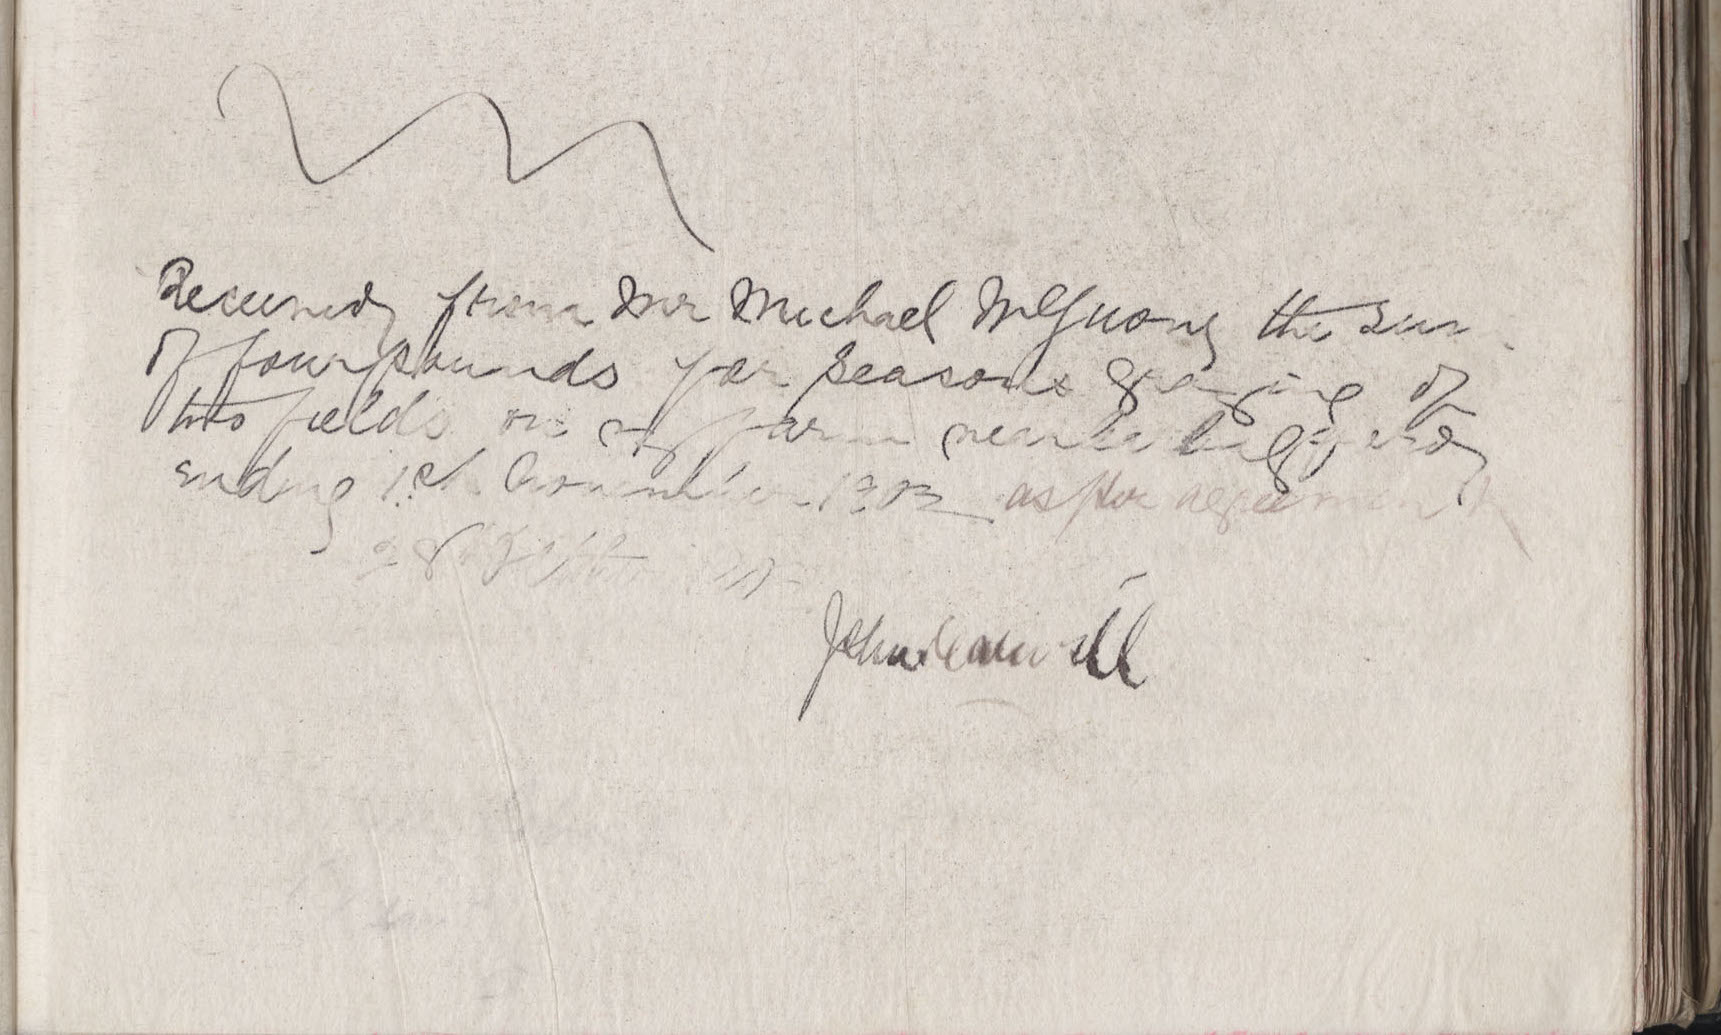 Received from Mr Michael the sum
of four pounds for Seasons grazing of
two fields on my farm near
ending 1st November 1902 as per agreement
28
John